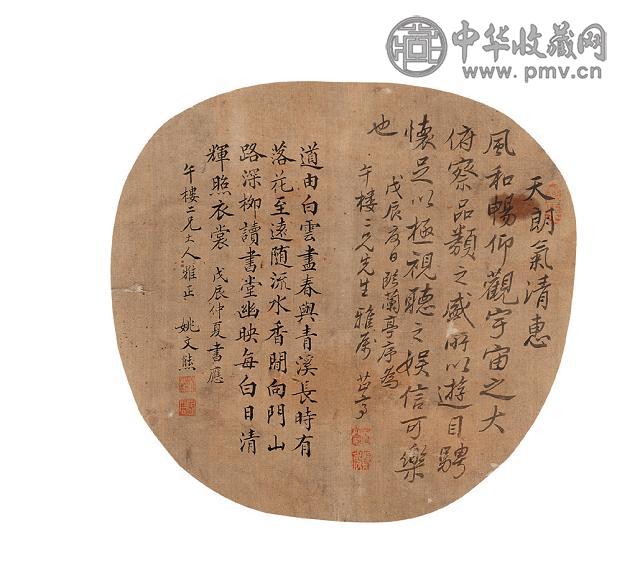 中华收藏网
www.pmv.cn
天朗氣清惠
風和暢仰觀宇宙之大
俯察品類之盛所以遊目騁
懷足以極視聽之娱信可樂
也
戊辰夏日臨蘭亭序為
午樓二兄先生雅属
道由白雲盡春與青溪長時有
落花至遠随流水香閒向門山
路深柳讀書堂幽映每白日清
輝照衣裳 戊辰仲夏書應
午樓二兄大人雅正 姚文熊